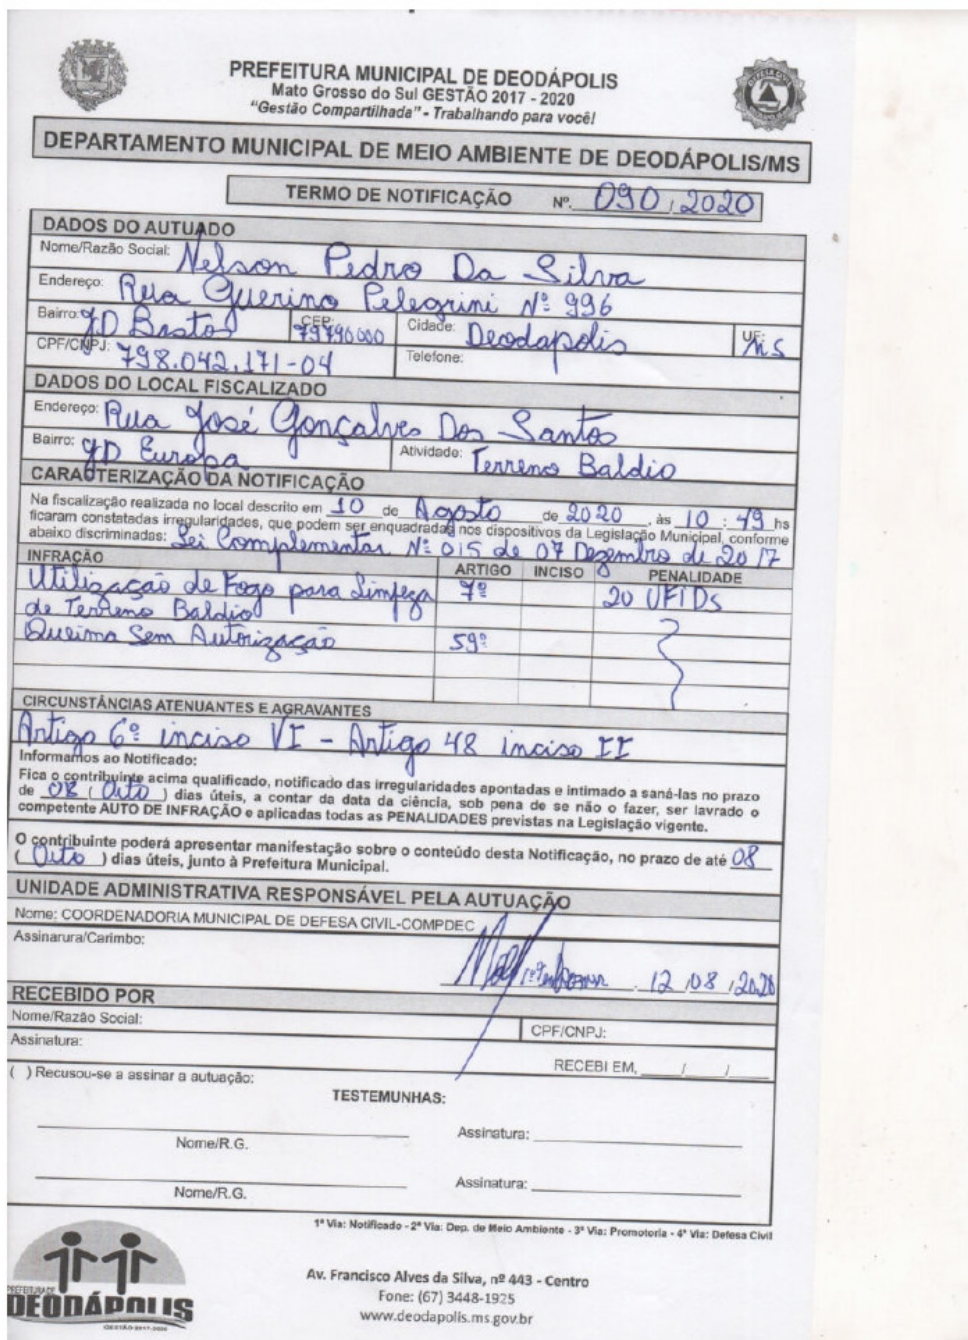 PREFEITURA MUNICIPAL DE DEODÁPOLIS
Mato Grosso do Sul GESTÃO 2017 - 2020
"Gestão Compartilhada" - Trabalhando para você!
DEPARTAMENTO MUNICIPAL DE MEIO AMBIENTE DE DEODÁPOLIS/MS
TERMO DE NOTIFICAÇÃO Nº. 090 / 2020
DADOS DO AUTUADO
Nome/Razão Social: Nelson Pedro Da Silva
Endereço: Rua Guerino Pelegrini Nº 996
Bairro: JD Bastos CEP: 79790000 Cidade: Deodapolis UF: MS
CPF/CNPJ: 798.042.171-04 Telefone:
DADOS DO LOCAL FISCALIZADO
Endereço: Rua José Gonçalves Dos Santos
Bairro: JD Europa Atividade: Terreno Baldio
CARACTERIZAÇÃO DA NOTIFICAÇÃO
Na fiscalização realizada no local descrito em 10 de Agosto de 2020, às 10 : 49 hs
ficaram constatadas irregularidades, que podem ser enquadradas nos dispositivos da Legislação Municipal, conforme
abaixo discriminadas: Lei Complementar Nº 015 de 07 Dezembro de 2017
INFRAÇÃO ARTIGO INCISO PENALIDADE
Utilização de Fogo para Limpeza 7º 20 UFIDs
de Terreno Baldio
Queima Sem Autorização 59º
CIRCUNSTÂNCIAS ATENUANTES E AGRAVANTES
Artigo 6º inciso VI - Artigo 48 inciso II
Informamos ao Notificado:
Fica o contribuinte acima qualificado, notificado das irregularidades apontadas e intimado a saná-las no prazo
de 08 ( Oito ) dias úteis, a contar da data da ciência, sob pena de se não o fazer, ser lavrado o
competente AUTO DE INFRAÇÃO e aplicadas todas as PENALIDADES previstas na Legislação vigente.
O contribuinte poderá apresentar manifestação sobre o conteúdo desta Notificação, no prazo de até 08
( Oito ) dias úteis, junto à Prefeitura Municipal.
UNIDADE ADMINISTRATIVA RESPONSÁVEL PELA AUTUAÇÃO
Nome: COORDENADORIA MUNICIPAL DE DEFESA CIVIL-COMPDEC
Assinarura/Carimbo:
12 / 08 / 2020
RECEBIDO POR
Nome/Razão Social: CPF/CNPJ:
Assinatura: RECEBI EM, ____/____/____
( ) Recusou-se a assinar a autuação:
TESTEMUNHAS:
Assinatura:
Nome/R.G.
Assinatura:
Nome/R.G.
1ª Via: Notificado - 2ª Via: Dep. de Meio Ambiente - 3ª Via: Promotoria - 4ª Via: Defesa Civil
PREFEITURA DE
DEODÁPOLIS
GESTÃO 2017-2020
Av. Francisco Alves da Silva, nº 443 - Centro
Fone: (67) 3448-1925
www.deodapolis.ms.gov.br